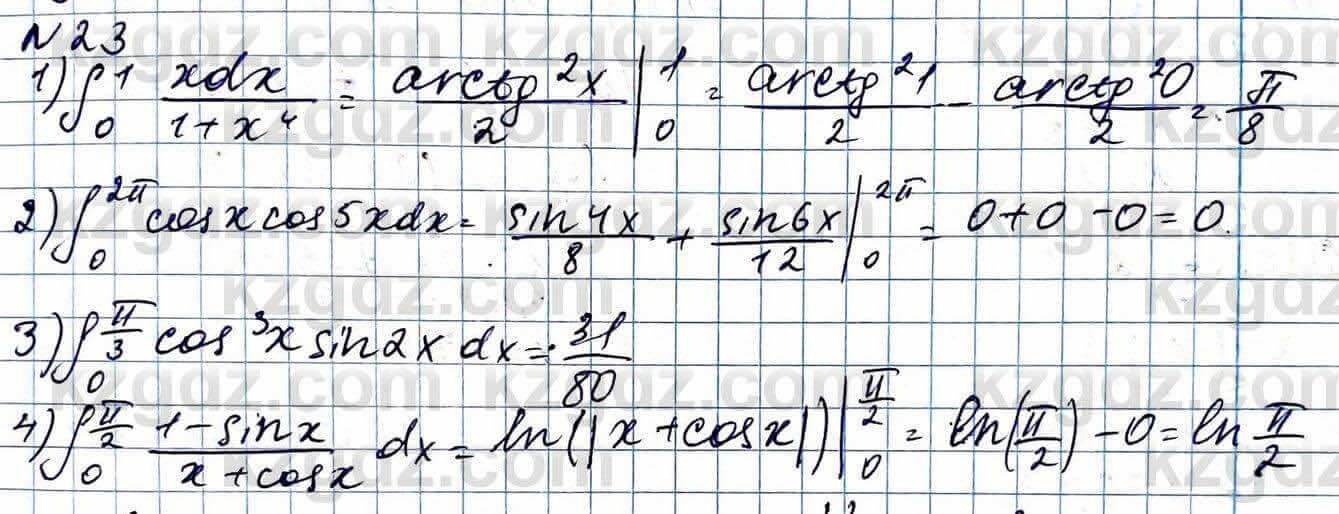 N23
1) ∫₀¹ xdx/(1+x⁴) = arctg²x/2 |₀¹ = arctg²1/2 - arctg²0/2 = π/8
2) ∫₀^(2π) cosx cos5xdx = sin4x/8 + sin6x/12 |₀^(2π) = 0+0-0=0.
3) ∫₀^(π/3) cos³x sin2x dx = 31/80
4) ∫₀^(π/2) (1-sinx)/(x+cosx) dx = ln(|x+cosx|) |₀^(π/2) = ln(π/2) - 0 = ln π/2
kzgdz.com